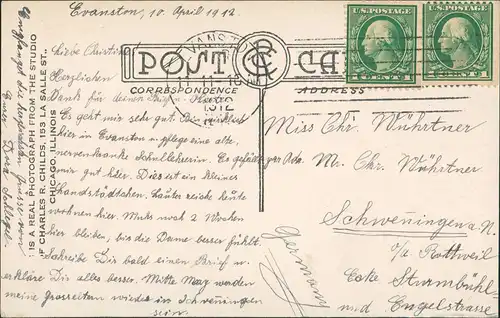 Evanston, 10. April 1912.
Liebe Christine
Herzlichen
Dank für deinen Brief u. Karte
Es geht mir sehr gut. Bin wirklich
hier in Evanston u. pflege eine alte,
nervenkranke Schullehrerin. Es gefällt
mir gut hier. Dies ist ein kleines
Landstädtchen. Lauter reiche Leute
wohnen hier. Muss noch 2 Wochen
hier bleiben, bis die Dame besser fühlt.
Schreibe Dir bald einen Brief u.
erkläre Dir alles besser. Mitte May werden
meine Grosseltern wieder in Schwenningen
sein.
die herzlichsten Grüsse von
Eurer Dora Schlegel
IS A REAL PHOTOGRAPH FROM THE STUDIO
OF CHARLES R. CHILDS, 1930 LA SALLE ST.
CHICAGO, ILLINOIS
POST CA
CORRESPONDENCE
ADDRESS
EVANSTON
1912
U.S. POSTAGE
1 CENT 1
U.S. POSTAGE
CENT 1
Miss Chr. Würtner
Adr. Mr. Chr. Würtner
Schwenningen a. N.
o/a Rottweil
Ecke Sturmbühl-
und Engelstrasse
Germany